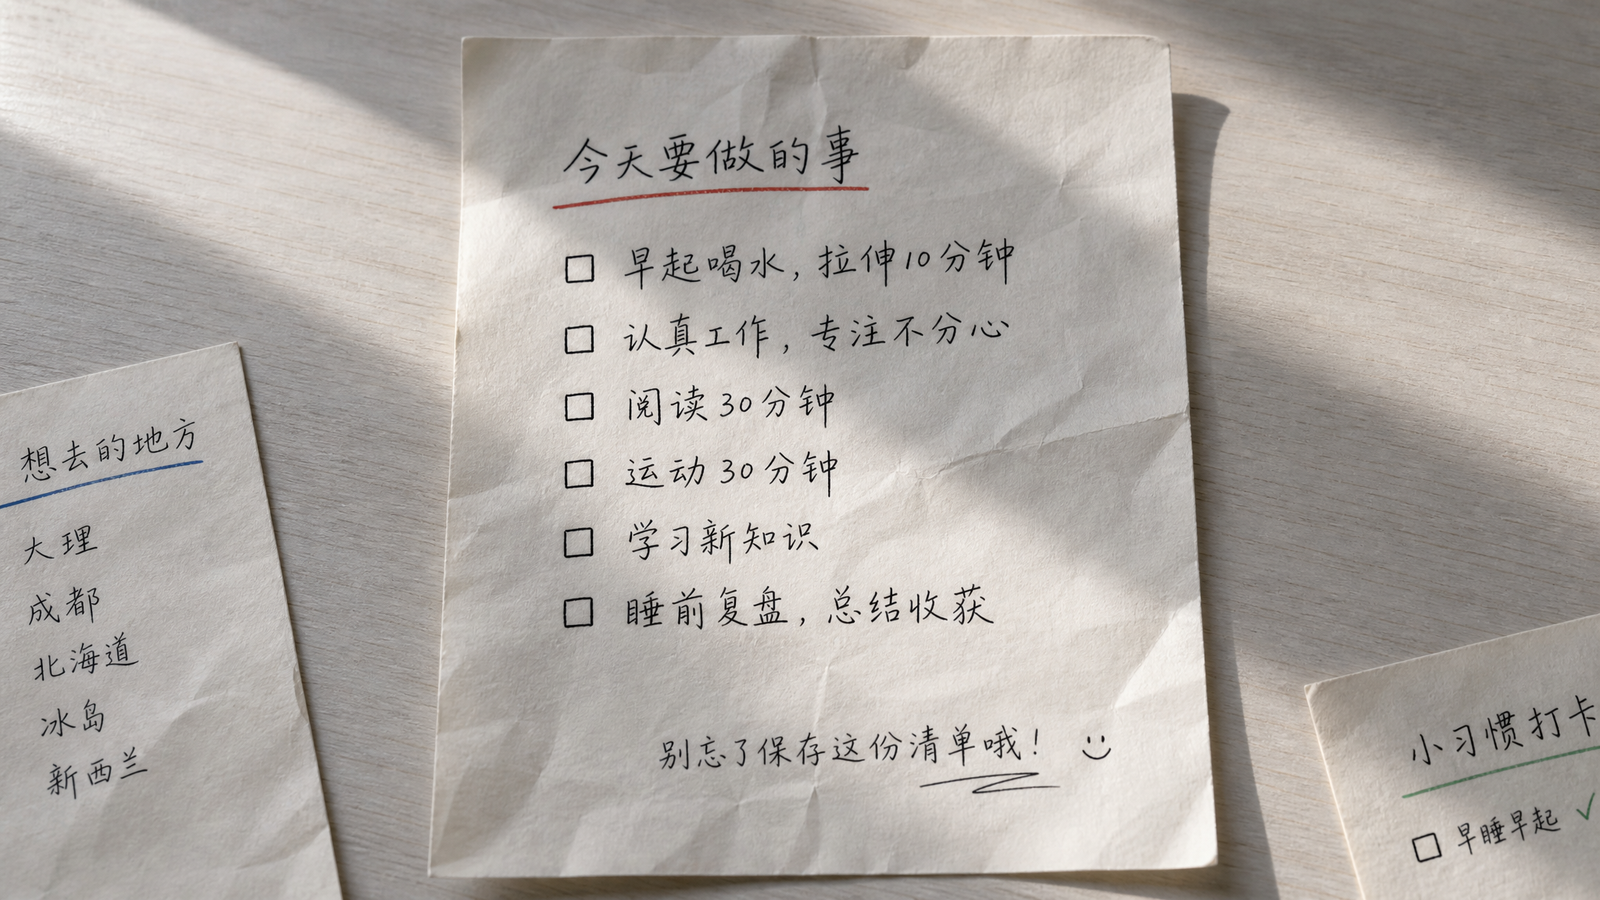 今天要做的事
早起喝水，拉伸10分钟
认真工作，专注不分心
阅读30分钟
运动30分钟
学习新知识
睡前复盘，总结收获
别忘了保存这份清单哦！
想去的地方
大理
成都
北海道
冰岛
新西兰
小习惯打卡
早睡早起